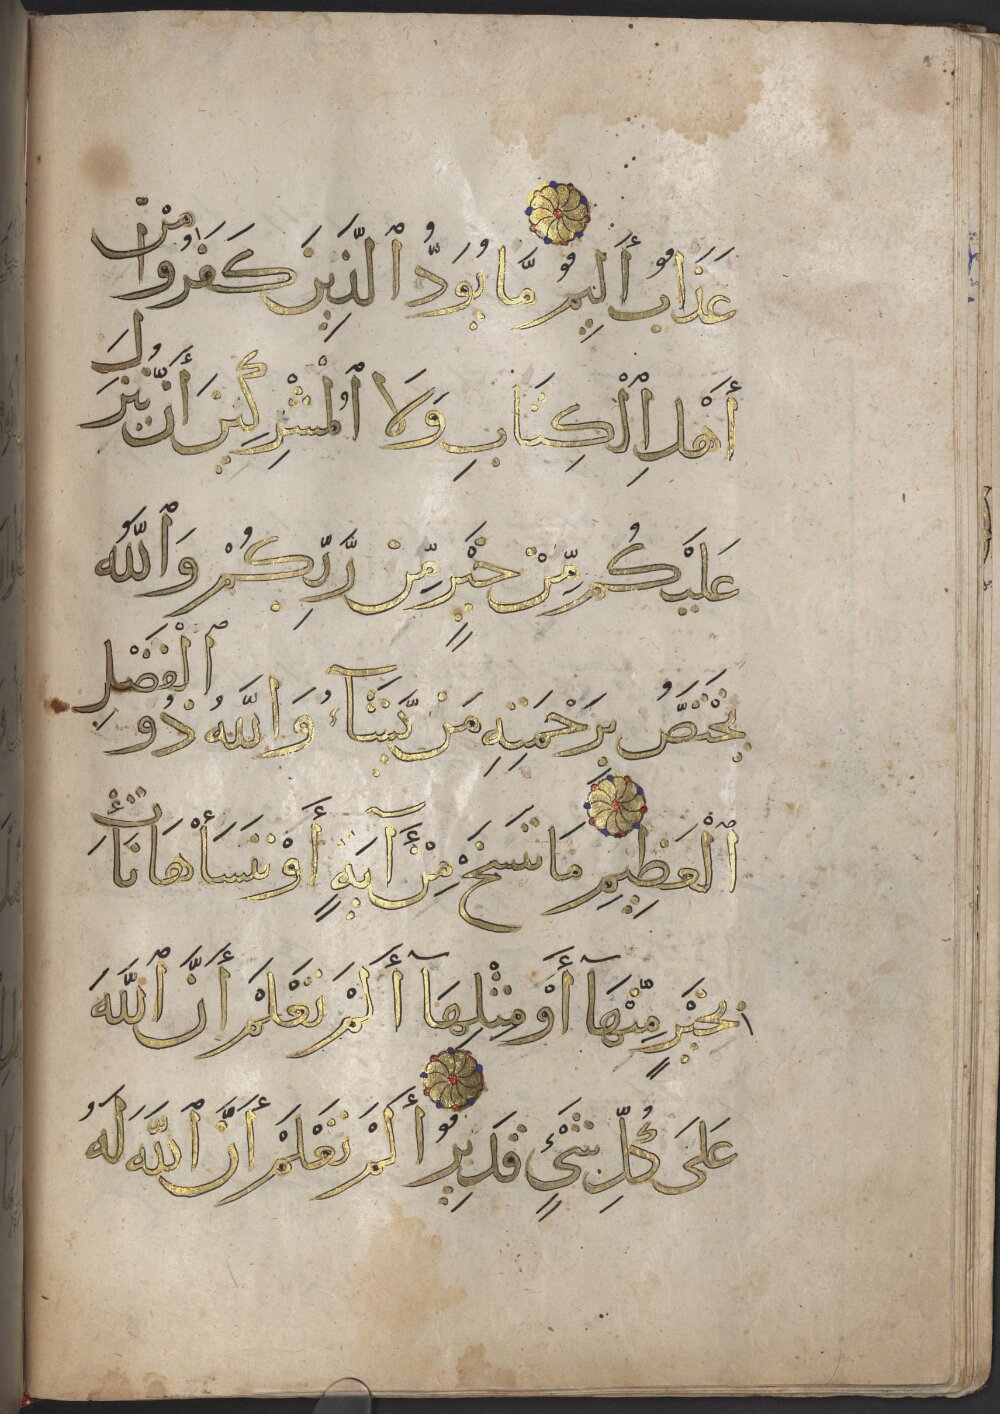 عَذَابٌ أَلِيمٌ مَّا يَوَدُّ ٱلَّذِينَ كَفَرُوا مِنْ
أَهْلِ ٱلْكِتَابِ وَلَا ٱلْمُشْرِكِينَ أَن يُنَزَّلَ
عَلَيْكُم مِّنْ خَيْرٍ مِّن رَّبِّكُمْ وَٱللَّهُ
يَخْتَصُّ بِرَحْمَتِهِ مَن يَّشَآءُ وَٱللَّهُ ذُو ٱلْفَضْلِ
ٱلْعَظِيمِ مَا نَنسَخْ مِنْ آيَةٍ أَوْ نَنسَأْهَا نَأْتِ
بِخَيْرٍ مِّنْهَآ أَوْ مِثْلِهَآ أَلَمْ تَعْلَمْ أَنَّ ٱللَّهَ
عَلَىٰ كُلِّ شَيْءٍ قَدِيرٌ أَلَمْ تَعْلَمْ أَنَّ ٱللَّهَ لَهُ